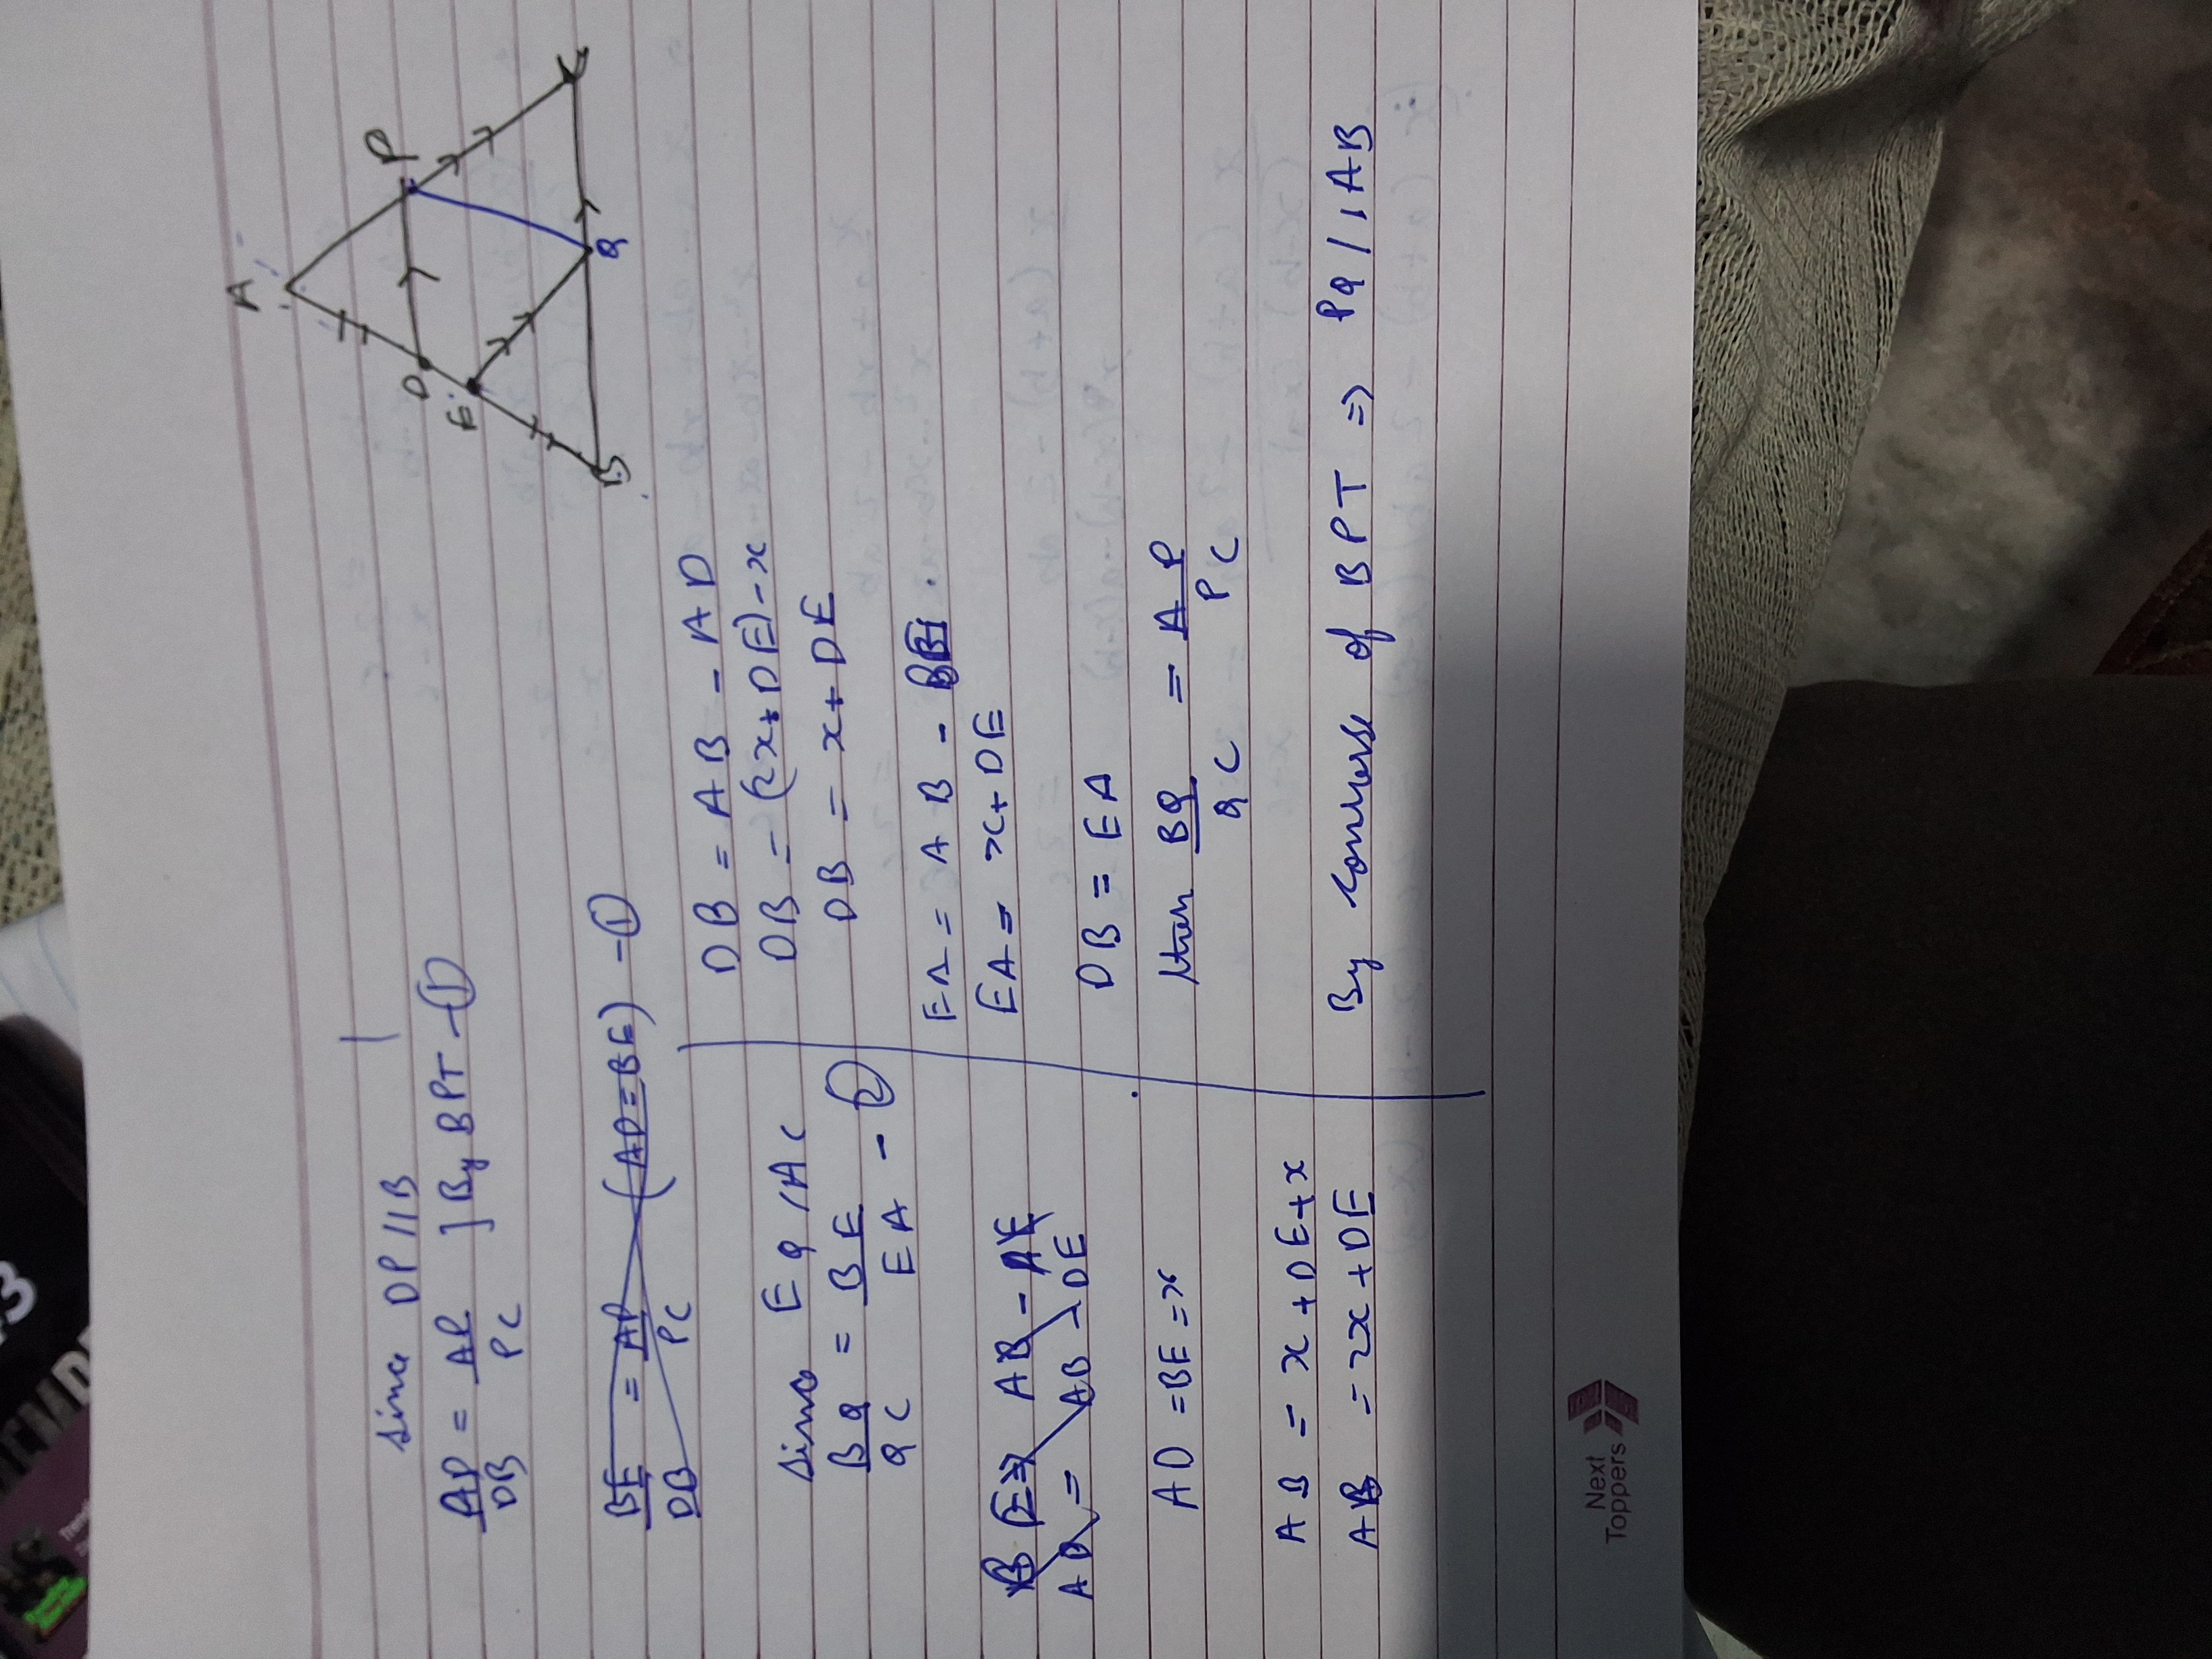 A
P
D
E
Q
B
Since DP || B
AD/DB = AP/PC ] By BPT - ①
BE/DB = AP/PC (AD=BE) - ①
Since EQ / AC
BQ/QC = BE/EA - ②
AD =
AB - DE
AD = BE = x
AB = x + DE + x
AB = 2x + DE
DB = AB - AD
DB = (2x + DE) - x
DB = x + DE
EA = AB -
EA = x + DE
DB = EA
then BQ/QC = AP/PC
By converse of BPT => PQ || AB
Next
Toppers